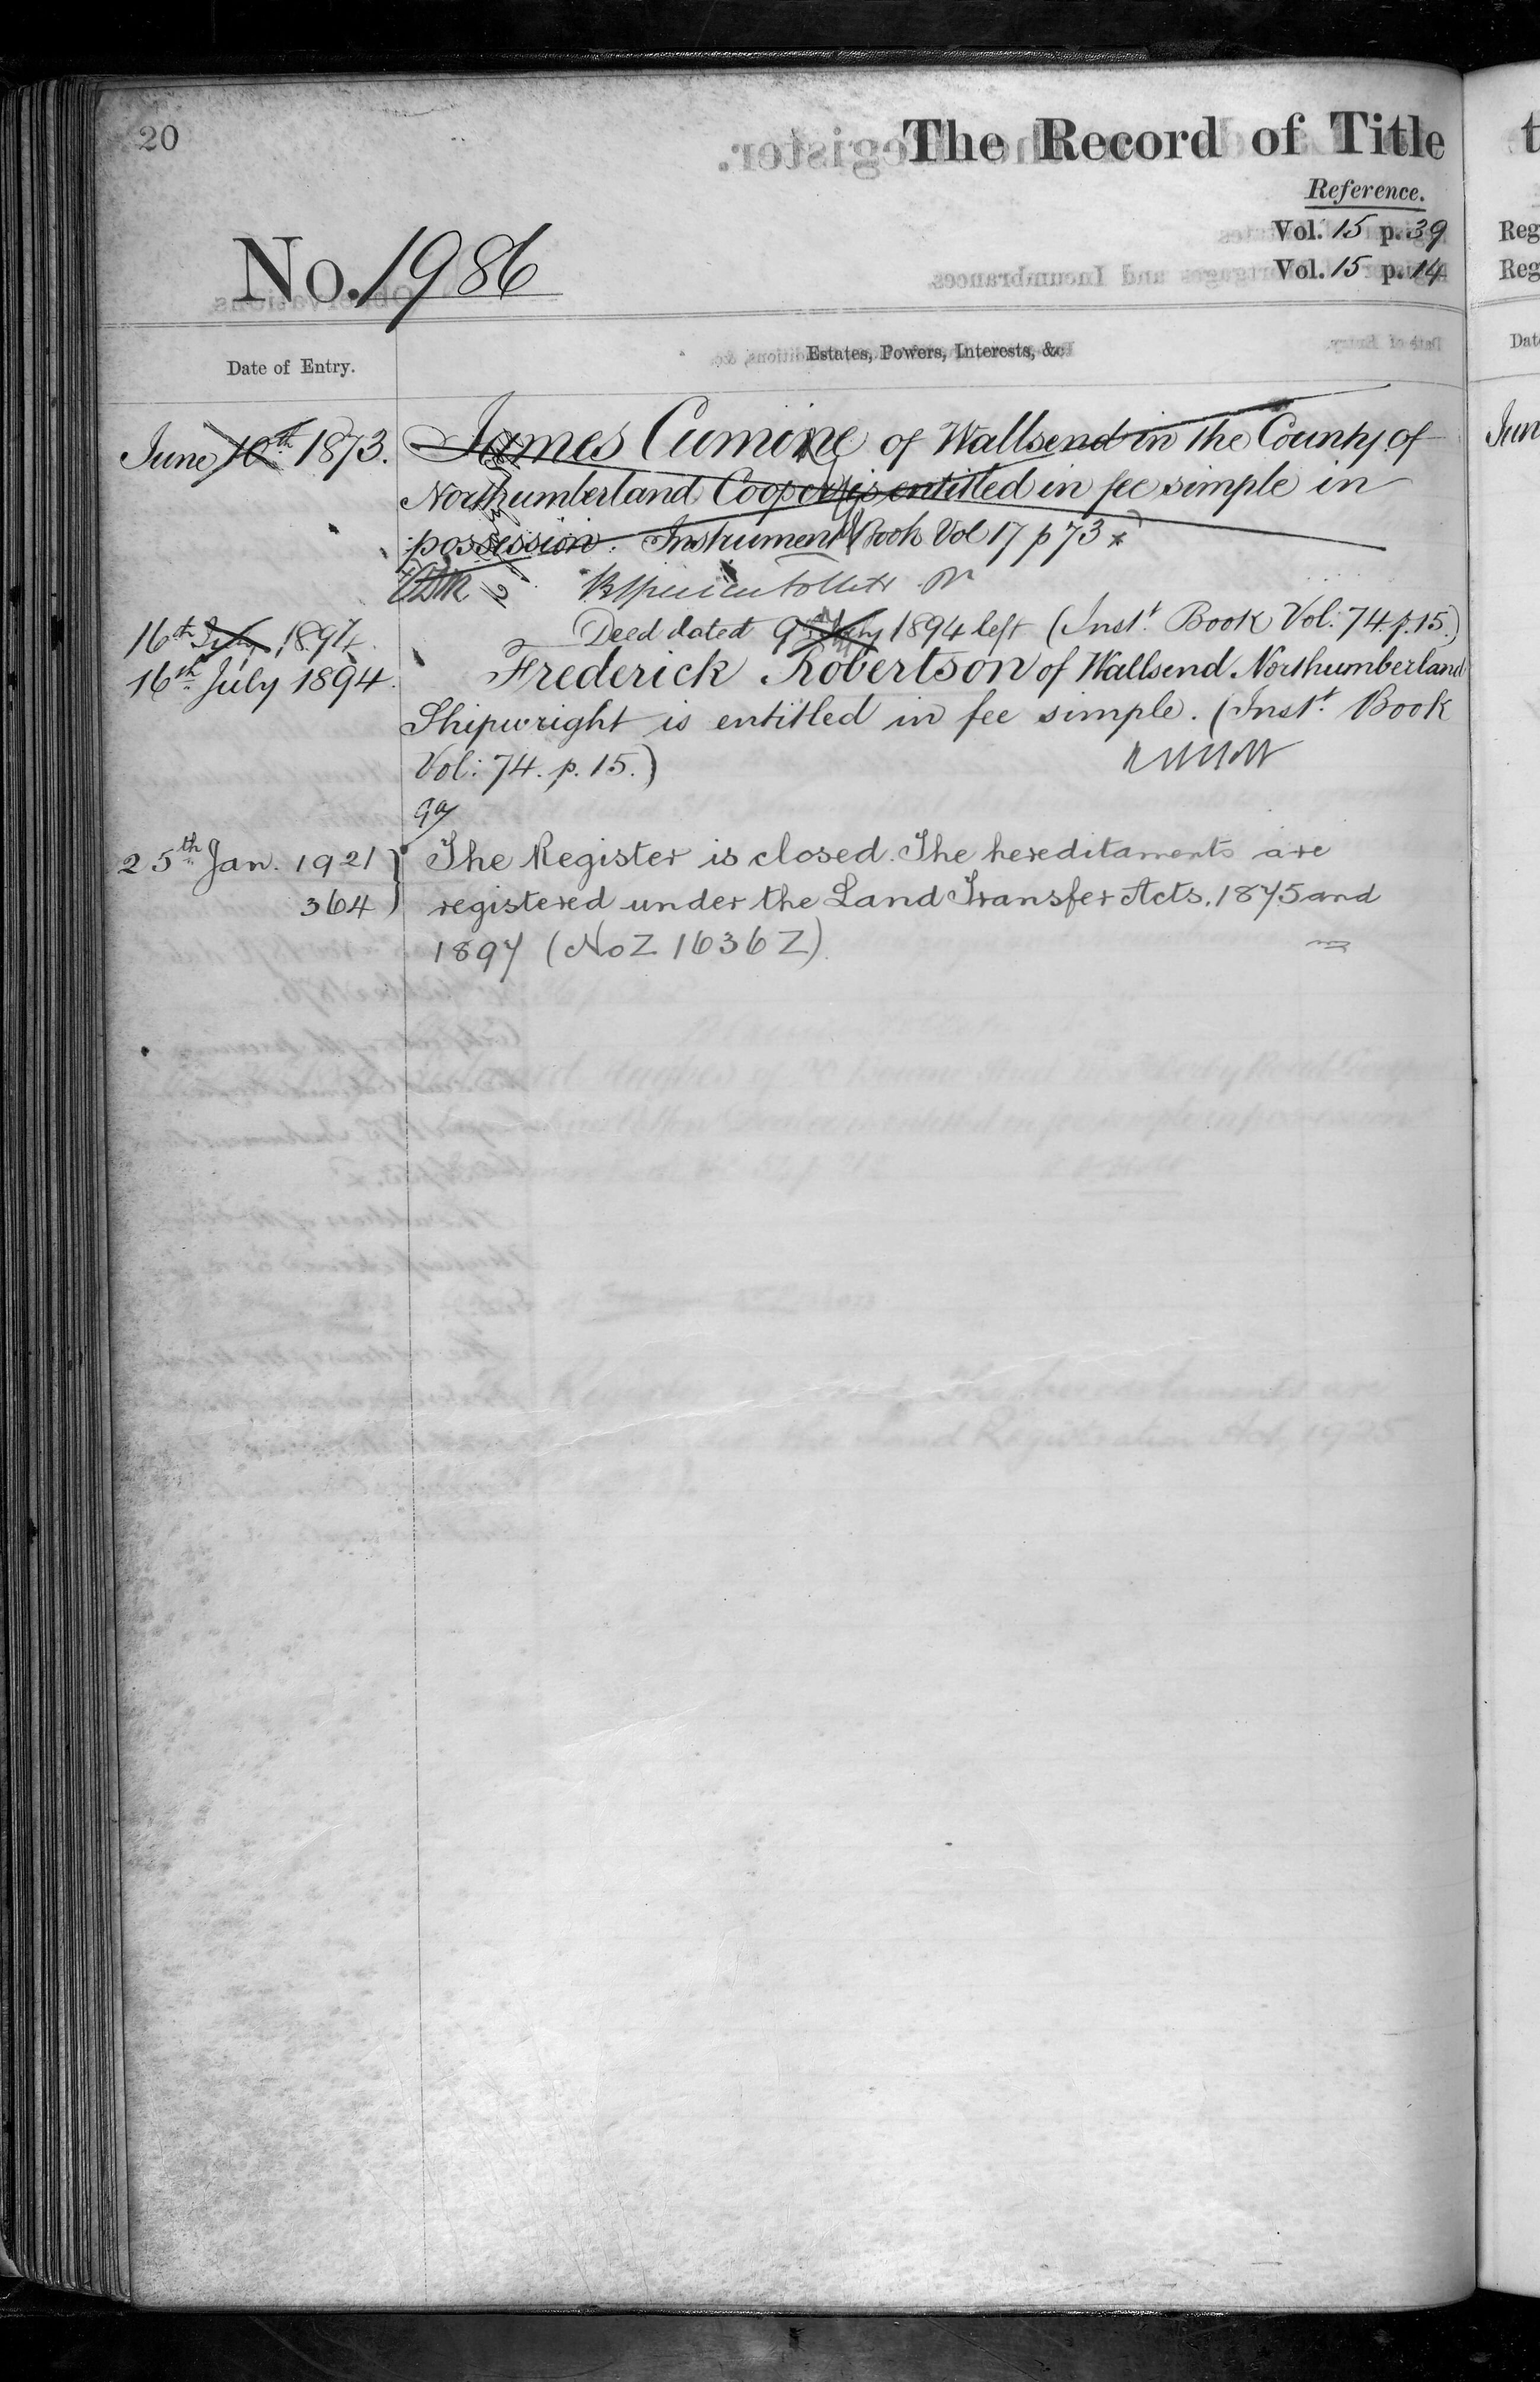 20
The Record of Title
Reference.
Vol. 15 p. 39
Vol. 15 p. 14
No. 1986
Date of Entry.
Estates, Powers, Interests, &c
June 10th 1873. James Cumine of Wallsend in the County of
Northumberland Cooper is entitled in fee simple in
possession. Instrument Book Vol 17 p 73
16th July 1894. Deed dated 9th July 1894 left (Inst. Book Vol: 74. p. 15.)
16th July 1894. Frederick Robertson of Wallsend Northumberland
Shipwright is entitled in fee simple. (Inst. Book
Vol: 74. p. 15.)
25th Jan. 1921 The Register is closed. The hereditaments are
364 registered under the Land Transfer Acts, 1875 and
1897 (No Z 1636 Z).
t
Reg
Reg
Dat
Jun